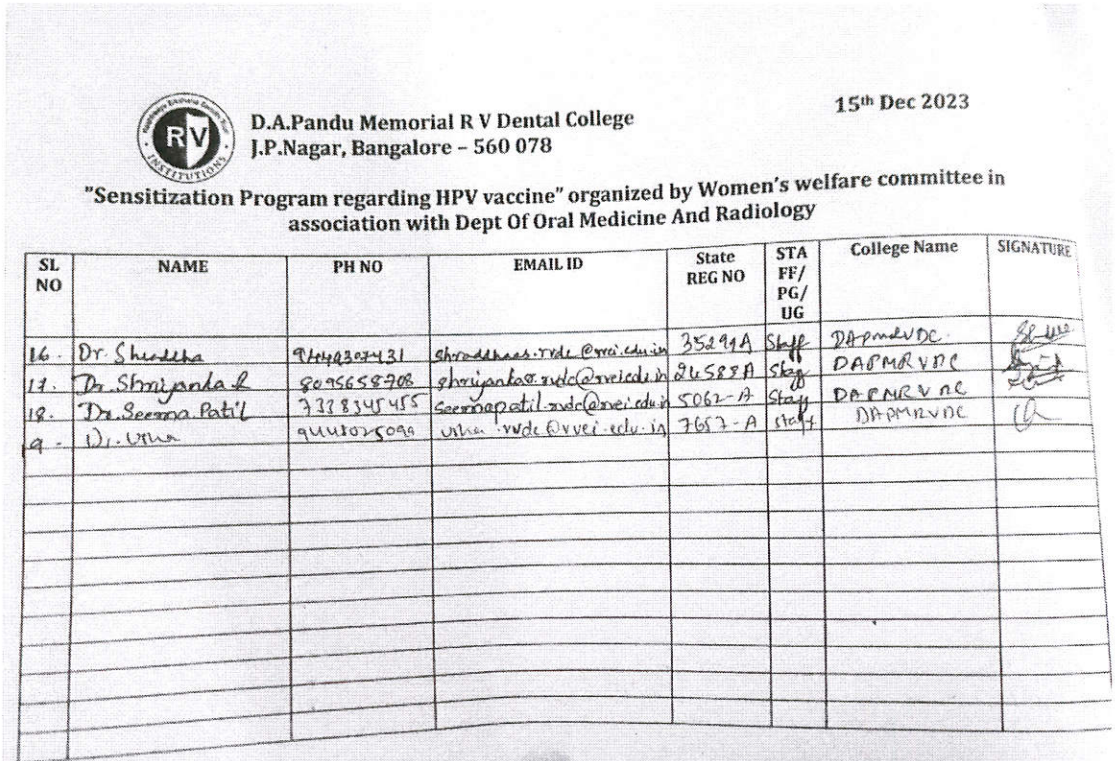 RV
INSTITUTIONS
15th Dec 2023
D.A.Pandu Memorial R V Dental College
J.P.Nagar, Bangalore – 560 078
"Sensitization Program regarding HPV vaccine" organized by Women's welfare committee in
association with Dept Of Oral Medicine And Radiology
SL NO NAME PH NO EMAIL ID State REG NO STA FF/ PG/ UG College Name SIGNATURE
16. Dr. Shraddha shraddhaas.rvdc@rvei.edu.in 35299A Staff DAPMRVDC.
17. Dr. Shriyanka R 8095658708 shriyankar.rvdc@rvei.edu.in 24588A Staff DAPMRVDC
18. Dr. Seema Patil 7338345455 seemapatil.rvdc@rvei.edu.in 5062-A Staff DAPMRVDC
9. Dr. Usha usha.rvdc@rvei.edu.in 7657-A Staff DAPMRVDC